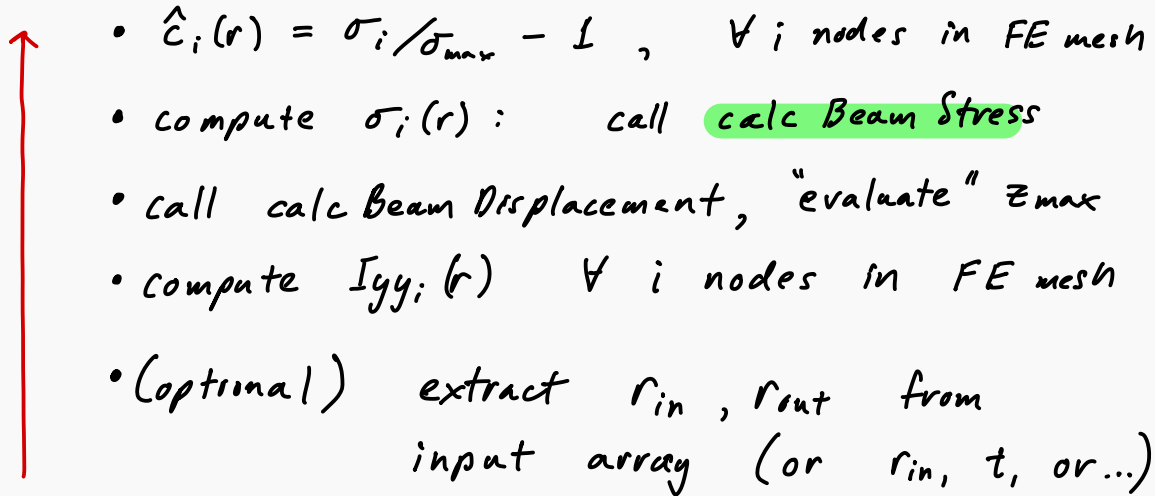 • ĉᵢ(r) = σᵢ/σₘₐₓ - 1 , ∀ i nodes in FE mesh
• compute σᵢ(r) : call calc Beam Stress
• call calc Beam Displacement, "evaluate" zmax
• compute Iyyᵢ(r) ∀ i nodes in FE mesh
• (optional) extract rin , rout from
input array (or rin, t, or...)